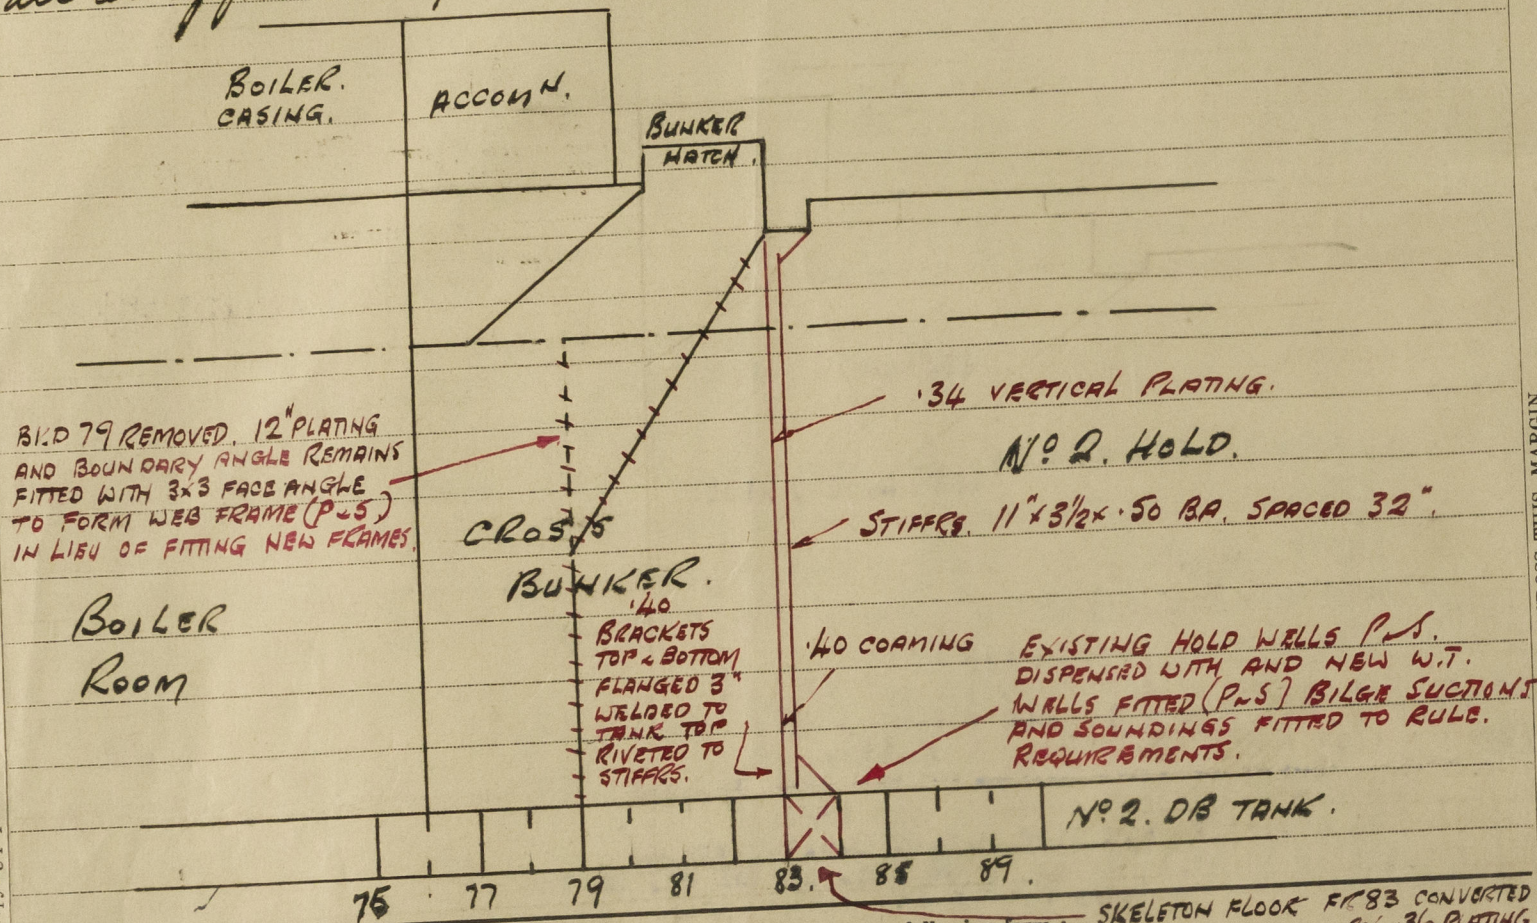 BOILER.
CASING.
ACCOMN.
BUNKER
HATCH.
BKD 79 REMOVED. 12" PLATING
AND BOUNDARY ANGLE REMAINS
FITTED WITH 3x3 FACE ANGLE
TO FORM WEB FRAME (P&S)
IN LIEU OF FITTING NEW FRAMES.
.34 VERTICAL PLATING.
No 2. HOLD.
STIFFRS. 11" x 3½ x .50 BA. SPACED 32".
CROSS
BUNKER.
BOILER
ROOM
.40
BRACKETS
TOP & BOTTOM
FLANGED 3"
WELDED TO
TANK TOP
RIVETED TO
STIFFRS.
.40 COAMING
EXISTING HOLD WELLS P&S.
DISPENSED WITH AND NEW W.T.
WELLS FITTED (P&S) BILGE SUCTIONS
AND SOUNDINGS FITTED TO RULE.
REQUIREMENTS.
No 2. DB TANK.
75 77 79 81 83. 85 89.
SKELETON FLOOR FR 83 CONVERTED
THIS MARGIN